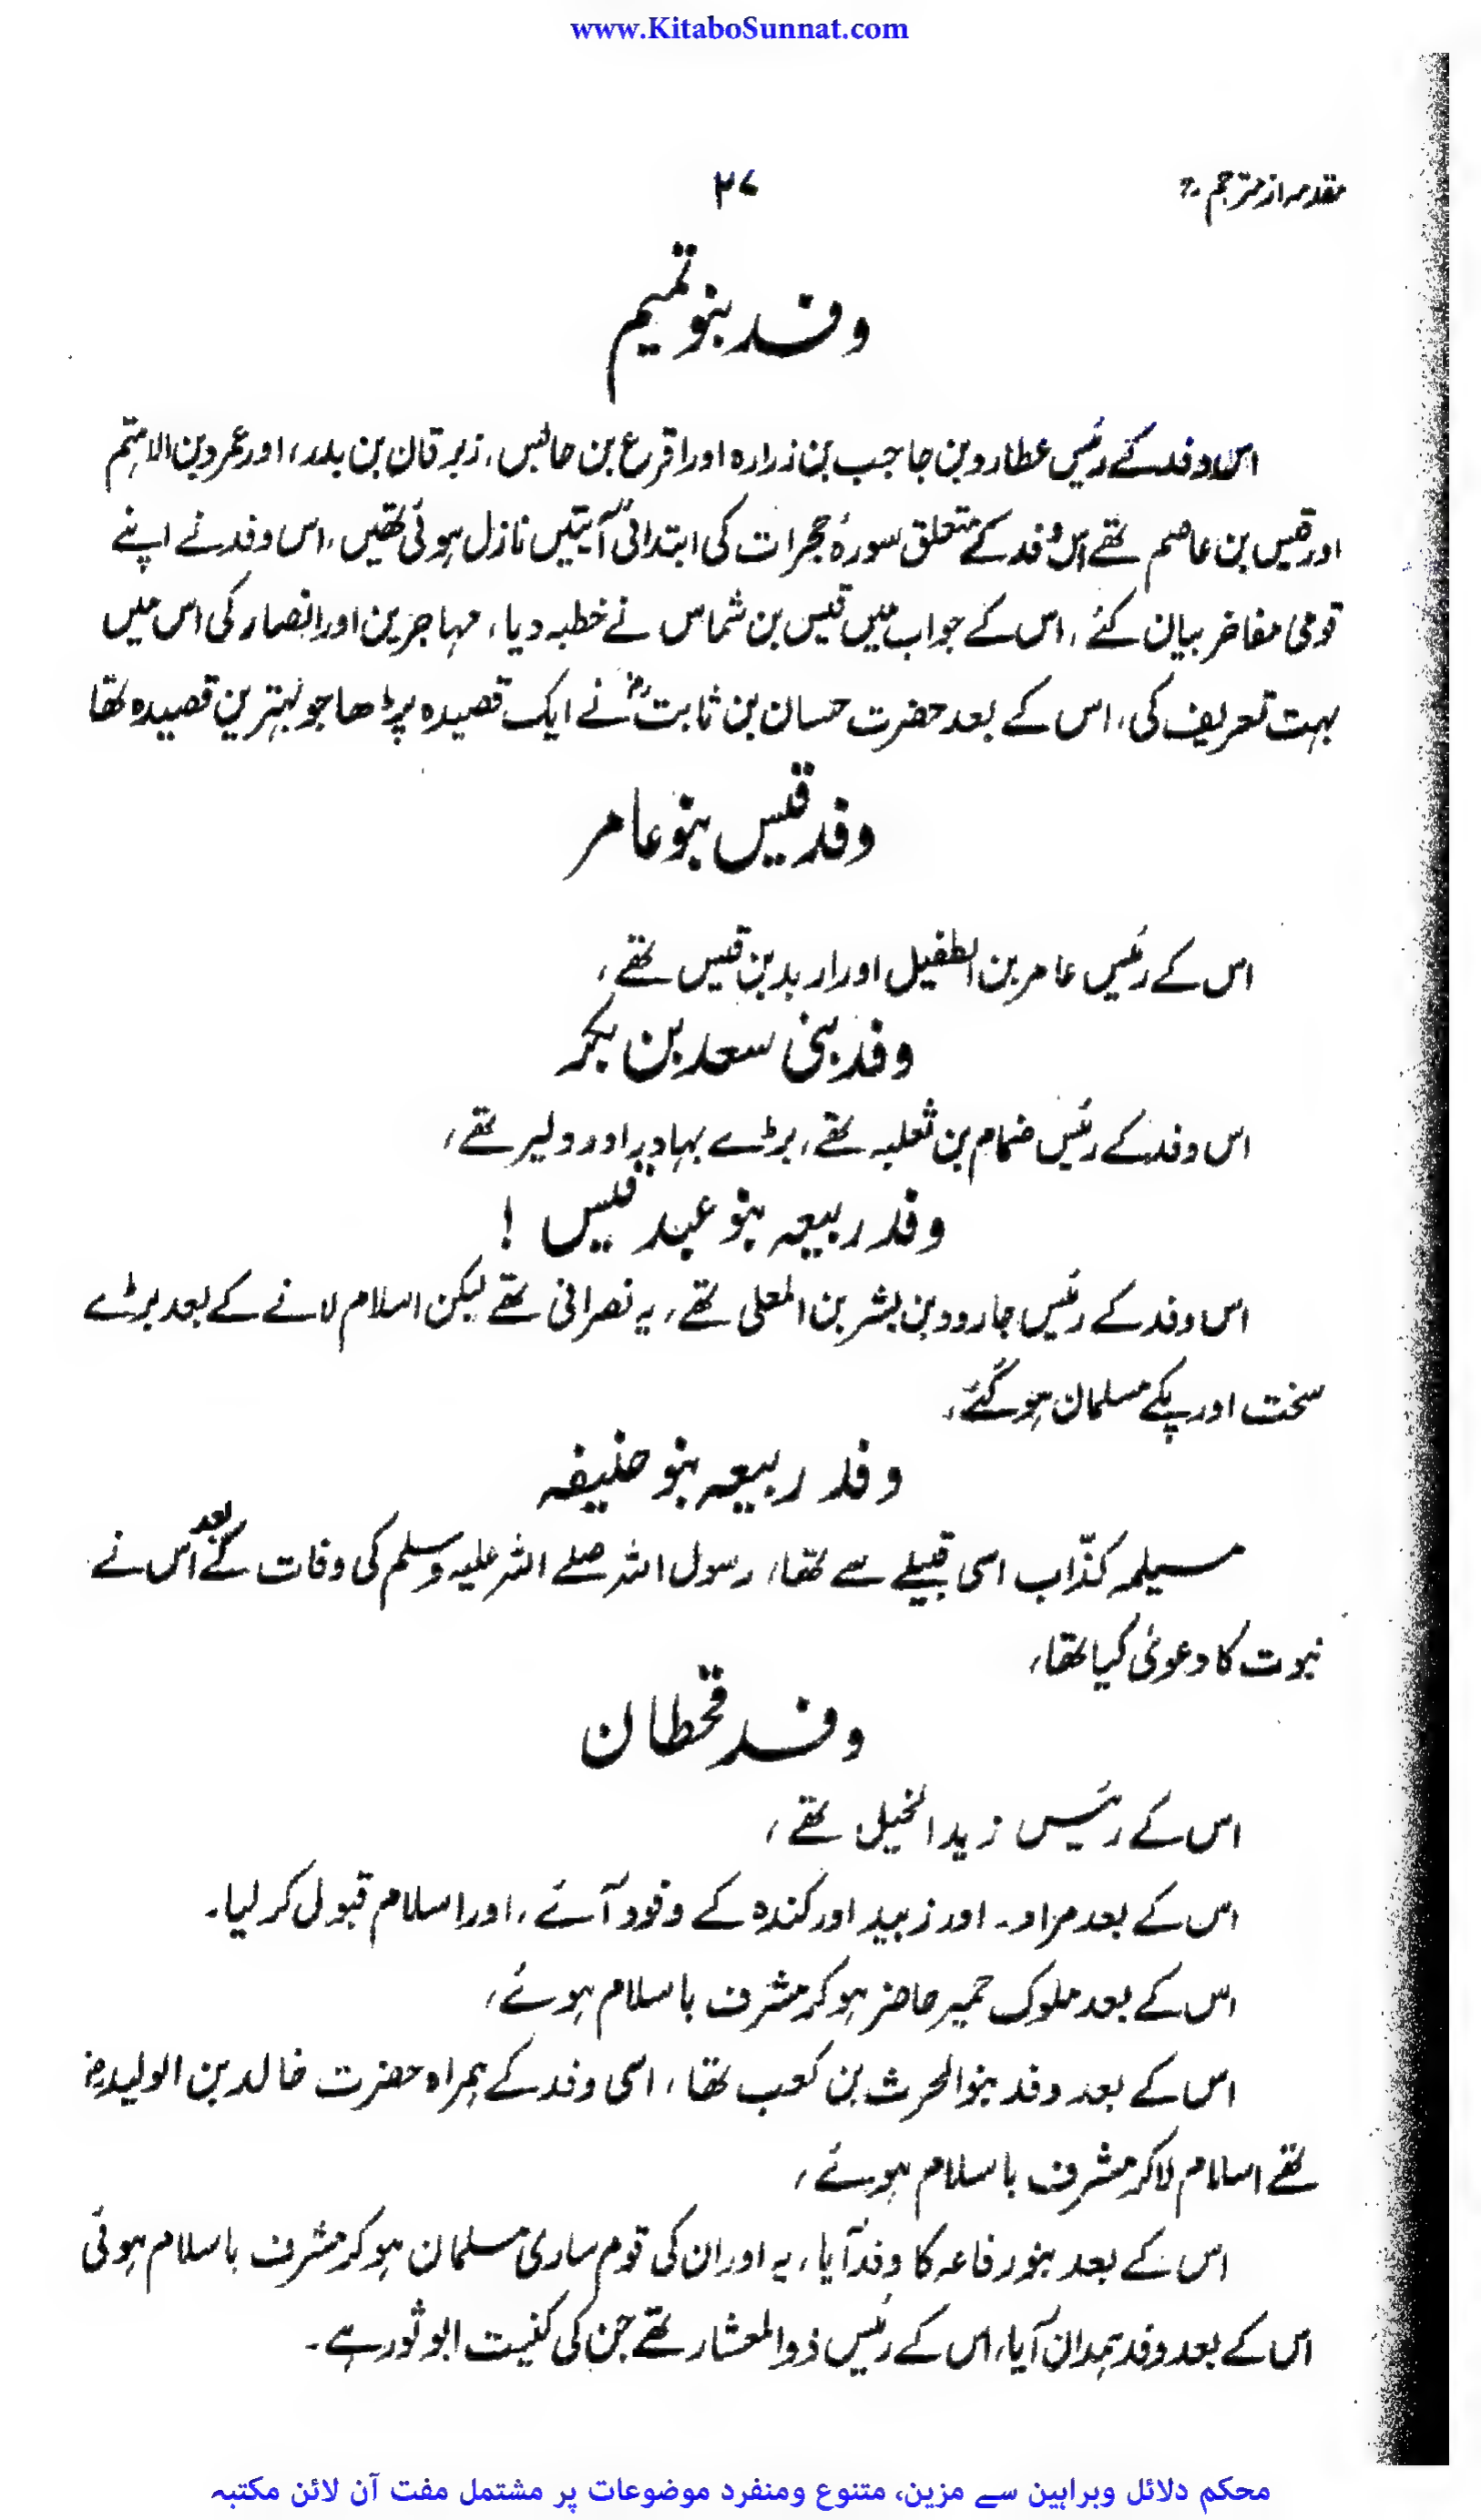 www.KitaboSunnat.com
مقدمہ از مترجم ۲۷
وفد بنو تمیم
اس وفد کے رئیس عطارد بن حاجب بن زرارہ اور اقرع بن حابس، زبرقان بن بدر، اور عمرو بن الاہتم
اور قیس بن عاصم تھے اس وفد کے متعلق سورۂ حجرات کی ابتدائی آیتیں نازل ہوئی تھیں، اس وفد نے اپنے
قومی مفاخر بیان کئے، اس کے جواب میں قیس بن شماس نے خطبہ دیا، مہاجرین اور انصار کی اس میں
بہت تعریف کی، اس کے بعد حضرت حسان بن ثابتؓ نے ایک قصیدہ پڑھا جو بہترین قصیدہ تھا
وفد قیس بنو عامر
اس کے رئیس عامر بن الطفیل اور اربد بن قیس تھے،
وفد بنی سعد بن بکر
اس وفد کے رئیس ضمام بن ثعلبہ تھے، بڑے بہادر اور دلیر تھے،
وفد ربیعہ بنو عبد قیس !
اس وفد کے رئیس جارود بن بشر بن المعلی تھے، یہ نصرانی تھے لیکن اسلام لانے کے بعد بڑے
سخت اور پکے مسلمان ہو گئے،
وفد ربیعہ بنو حنیفہ
مسیلمہ کذّاب اسی قبیلے سے تھا، رسول اللہ صلے اللہ علیہ وسلم کی وفات کے بعد اس نے
نبوت کا دعویٰ کیا تھا،
وفد قحطان
اس کے رئیس زید الخیل تھے،
اس کے بعد مراد۔ اور زبید اور کندہ کے وفود آئے، اور اسلام قبول کر لیا۔
اس کے بعد ملوک حمیر حاضر ہو کر مشرف باسلام ہوئے،
اس کے بعد وفد بنو الحرث بن کعب تھا، اسی وفد کے ہمراہ حضرت خالد بن الولیدؓ
تھے اسلام لا کر مشرف باسلام ہوئے،
اس کے بعد بنو رفاعہ کا وفد آیا، یہ اور ان کی قوم ساری مسلمان ہو کر مشرف باسلام ہوئی
اس کے بعد وفد ہمدان آیا، اس کے رئیس ذوالمعشار تھے جن کی کنیت ابو ثور ہے۔
محکم دلائل وبراہین سے مزین، متنوع ومنفرد موضوعات پر مشتمل مفت آن لائن مکتبہ